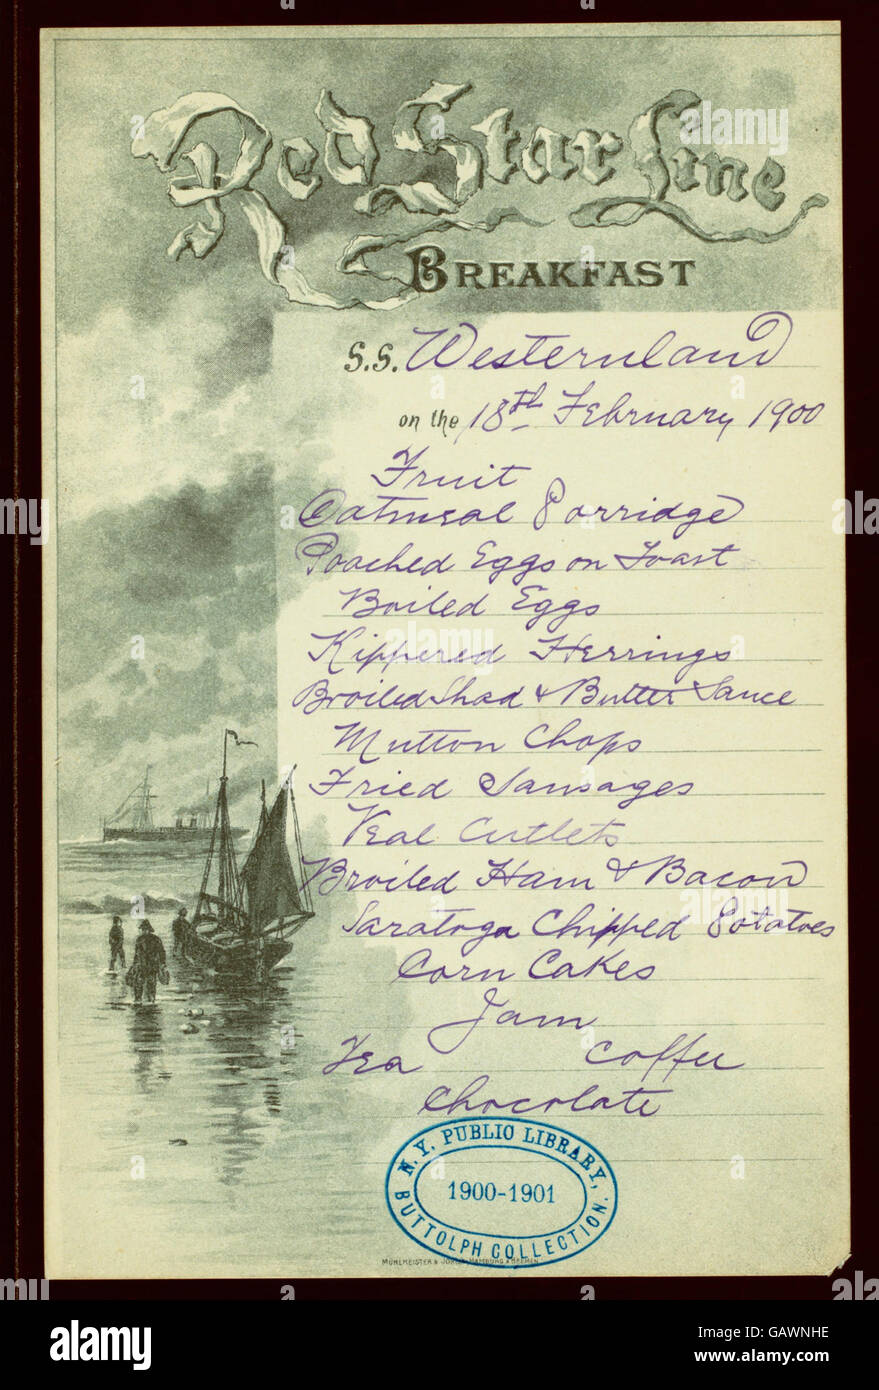 Red Star Line
BREAKFAST
S.S. Westernland
on the 18th February 1900
Fruit
Oatmeal Porridge
Poached Eggs on Toast
Boiled Eggs
Kippered Herrings
Broiled Shad & Butter Sauce
Mutton Chops
Fried Sausages
Veal Cutlets
Broiled Ham & Bacon
Saratoga Chipped Potatoes
Corn Cakes
Jam
Tea Coffee
Chocolate
N.Y. PUBLIC LIBRARY,
1900-1901
BUTTOLPH COLLECTION.
MÜHLMEISTER & HAMBURG & BREMEN
alamy
alamy
Image ID: GAWNHE
www.alamy.com